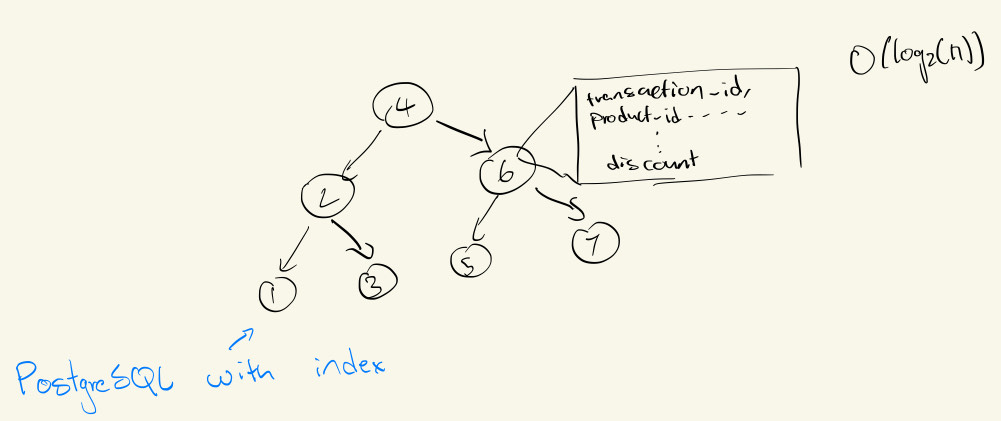 O(log₂(n))
4
transaction_id,
product_id - - - -
6
discount
2
5
7
1
3
PostgreSQL with index